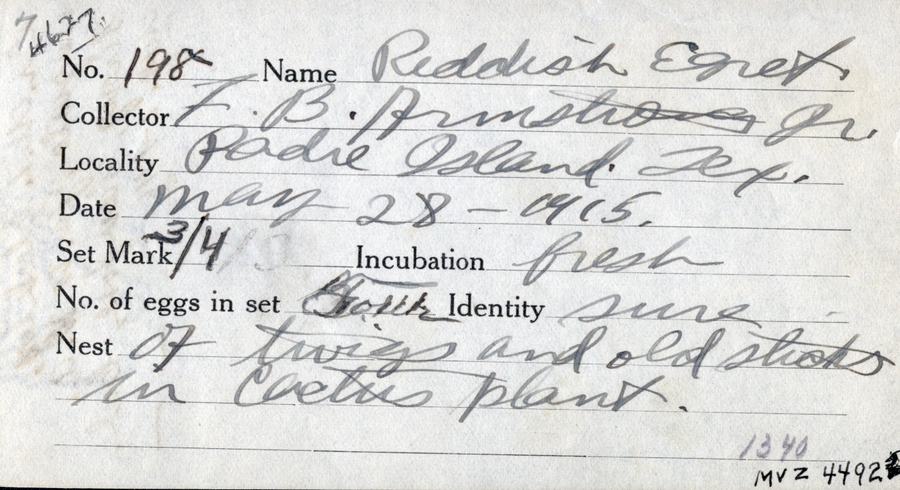 4677.
No. 198 Name Reddish Egret.
Collector F. B. Armstrong Jr.
Locality Padre Island. Tex.
Date May 28 - 1915.
Set Mark 3/4 Incubation fresh
No. of eggs in set Four Identity sure
Nest Of twigs and old sticks
in Cactus plant.
1340
MVZ 4492